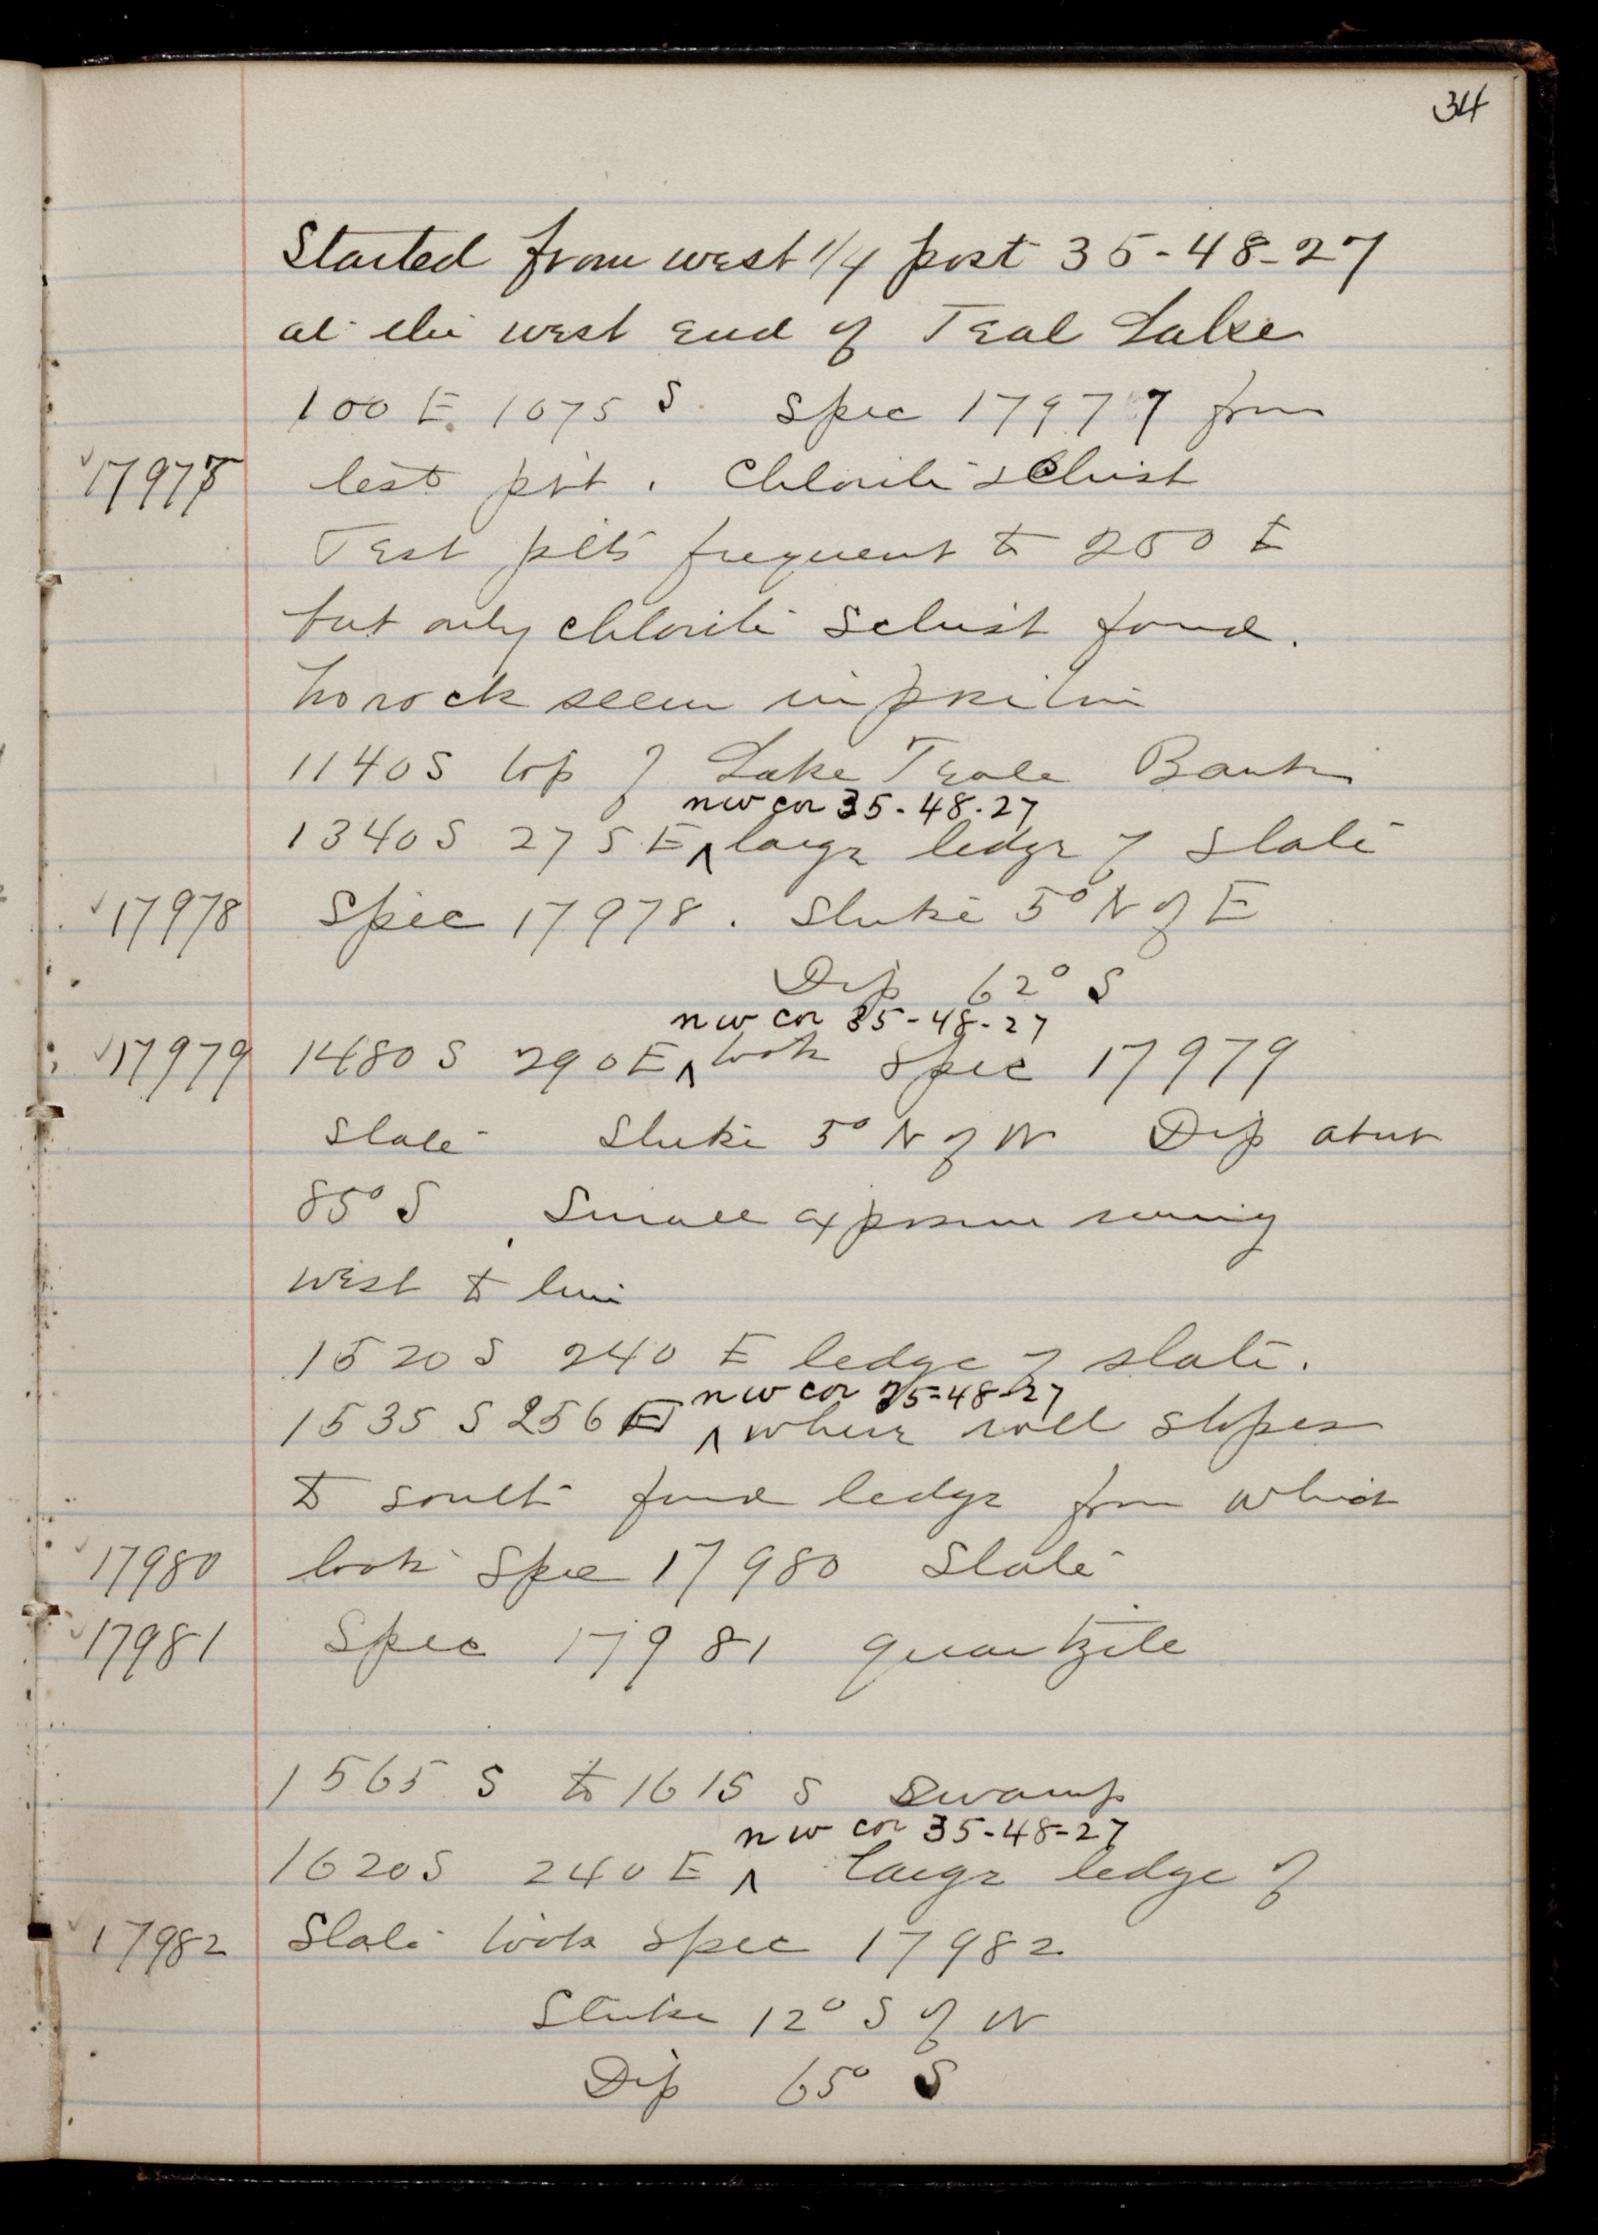 34
Started from west 1/4 post 35-48-27
at the west end of Teal Lake
100 E 1075 S. Spec 17977 from
✓17977 test pit. Chlorite schist
Test pits frequent to 250 E
but only chlorite schist found.
No rock seen in position
1140 S top of Lake Teale Bank
nw cor 35-48-27
1340 S 275 E ^ large ledge of slate
✓17978 Spec 17978. Strike 5° N of E
Dip 62° S
nw cor 35-48-27
✓17979 1480 S 290 E ^ took Spec 17979
Slate Strike 5° N of W Dip about
85° S. Small exposure runing
west to line
1520 S 240 E ledge of slate.
nw cor 35-48-27
1535 S 256 E ^ where roll slopes
to south found ledge from which
✓17980 took Spec 17980 Slate
✓17981 Spec 17981 quartzite
1565 S to 1615 S Swamp
nw cor 35-48-27
1620 S 240 E ^ large ledge of
✓17982 Slate took Spec 17982
Strike 12° S of W
Dip 65° S